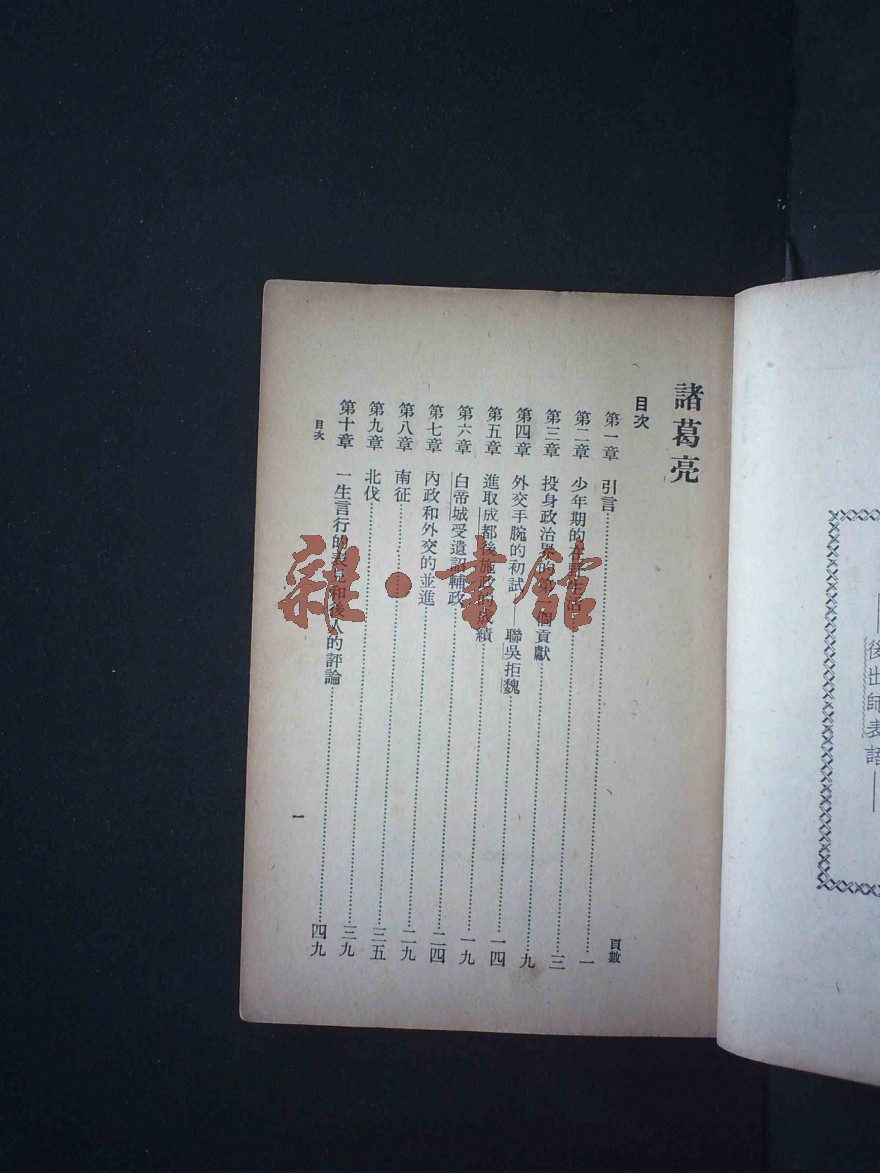 ——後出師表語——
諸葛亮
目次
頁數
第一章 引言……一
第二章 少年期的在野生活……三
第三章 投身政治界的第一個貢獻……九
第四章 外交手腕的初試——聯吳拒魏……一四
第五章 進取成都後施政的成績……一九
第六章 白帝城受遺詔輔政……二四
第七章 內政和外交的並進……二九
第八章 南征……三五
第九章 北伐……三九
第十章 一生言行的表見和後人的評論……四九
目次
一
雜·書館